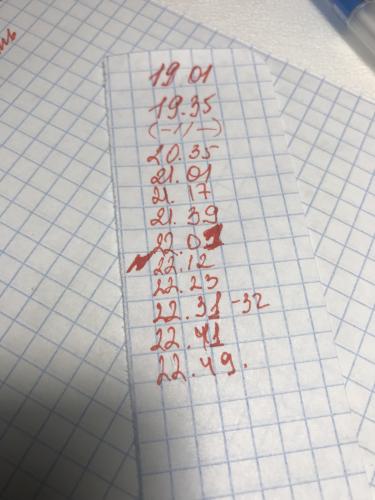 ль
19 01
19.35
(-11-)
20.35
21.01
21.17
21.39
22.01
22.12
22.23
22.31-32
22.41
22.49.